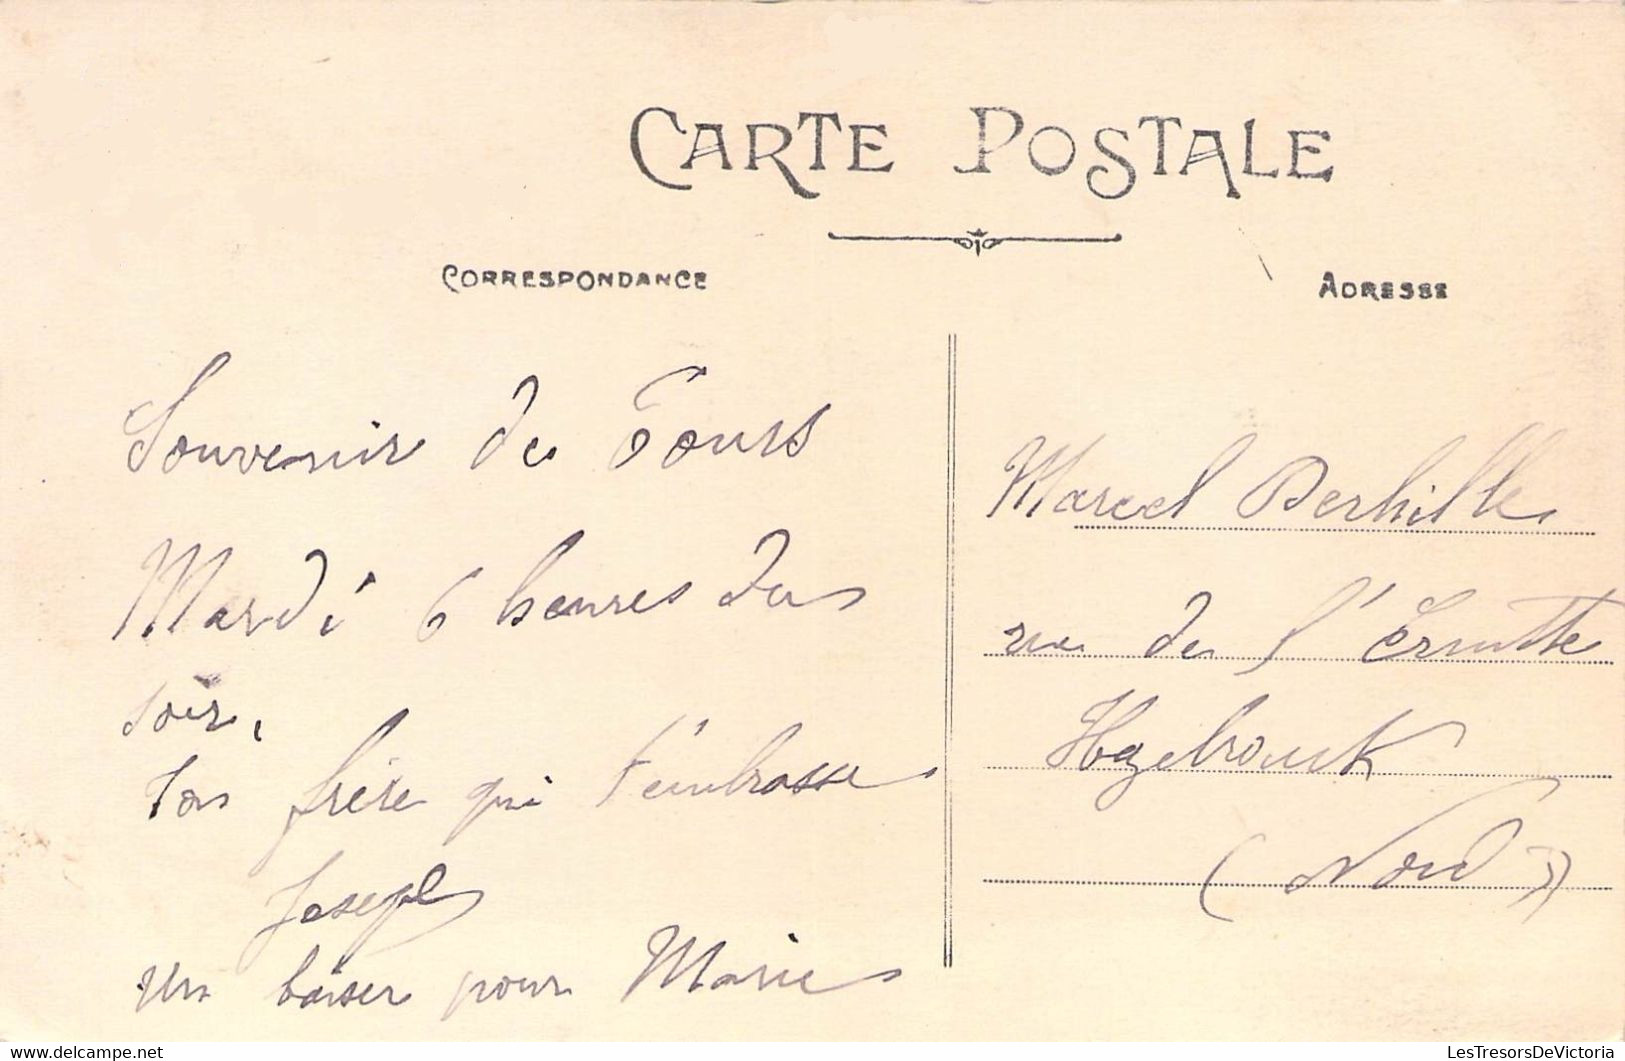 CARTE POSTALE
CORRESPONDANCE
ADRESSE
Souvenir de Tours
Mardi 6 heures du
soir,
Ton frère qui t'embrasse
Joseph
Un baiser pour Marie
Marcel
rue de l'Ermitte
Hazebrouck
(Nord)
LesTresorsDeVictoria